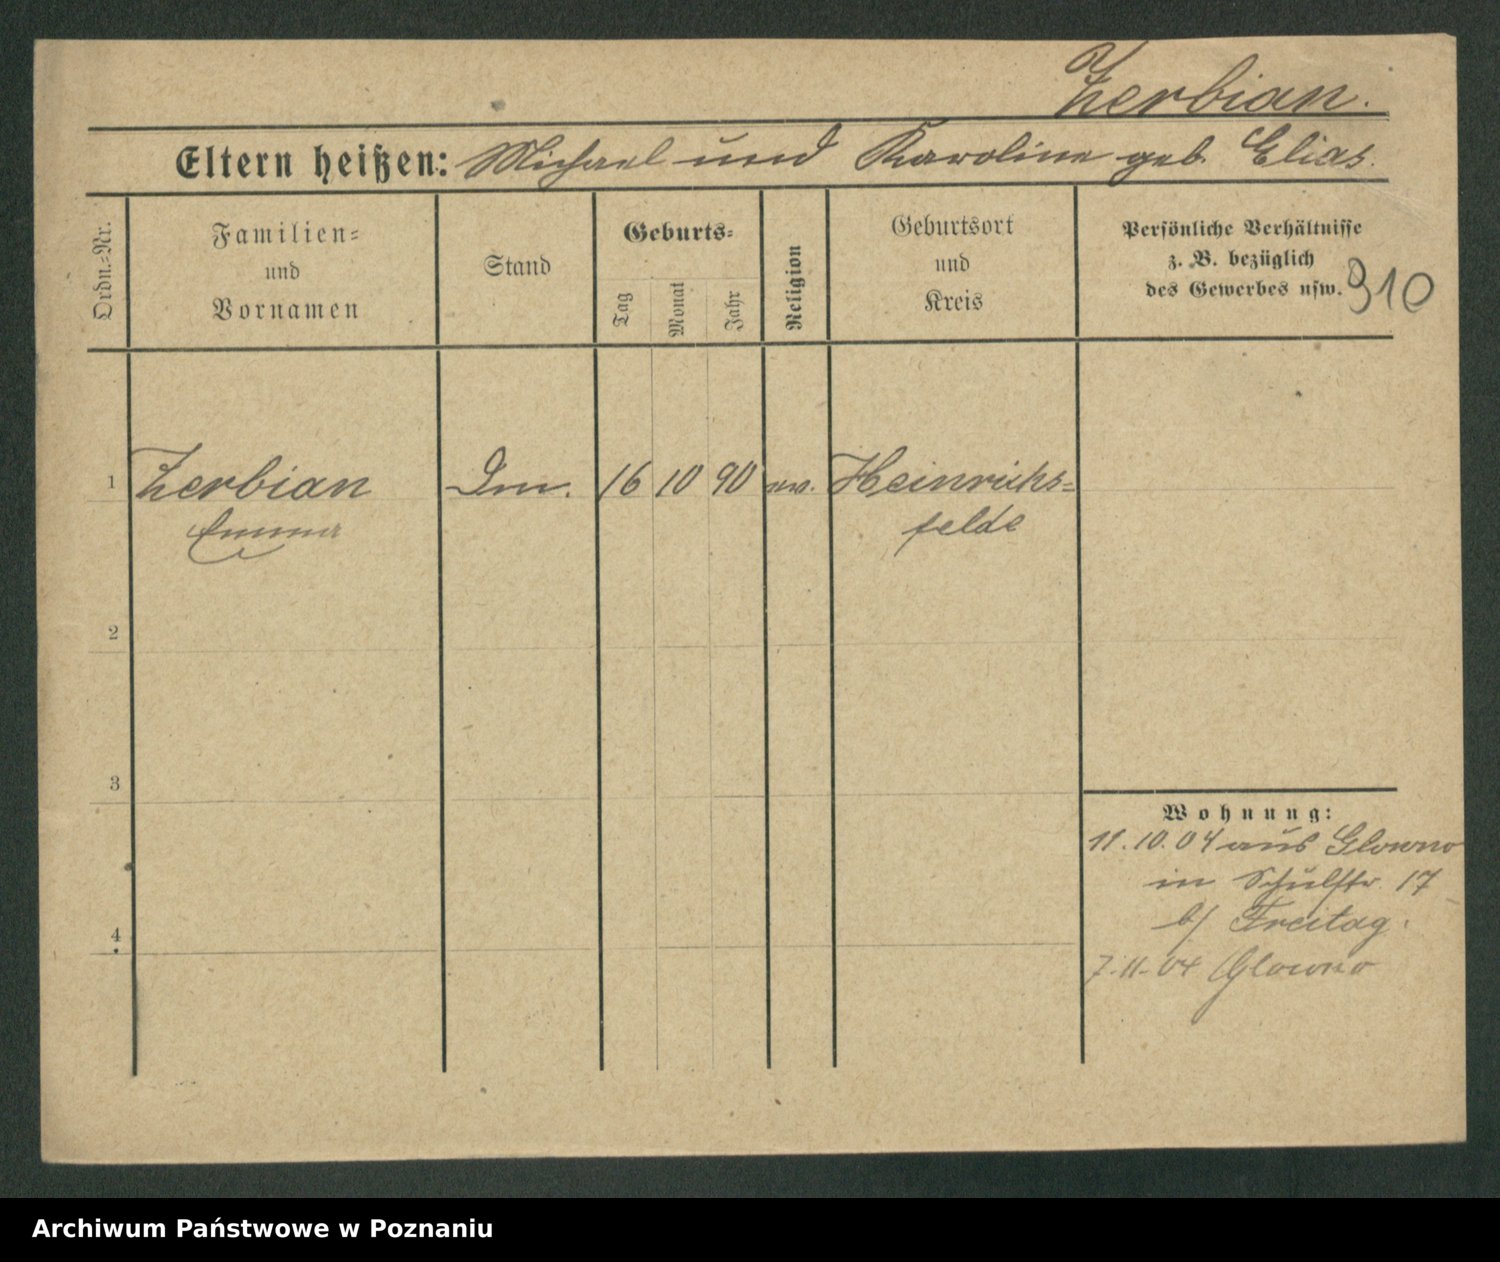 Zerbian.
Eltern heißen: Michael und Karoline geb. Elias.
Ordn.-Nr.
Familien-
und
Vornamen
Stand
Geburts-
Tag
Monat
Jahr
Religion
Geburtsort
und
Kreis
Persönliche Verhältnisse
z. B. bezüglich
des Gewerbes usw.
910
1 Zerbian 16 10 90 ev. Heinrichs-
Emma felde
2
3
4
Wohnung:
11.10.04 aus Glowno
in Schulstr. 17
b/ Freitag.
7.11.04 Glowno
Archiwum Państwowe w Poznaniu